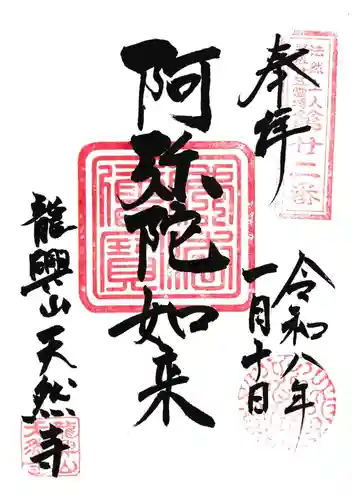 奉拝
法然上人
第廿二番
令和八年
一月十日
阿弥陀如来
龍興山天然寺